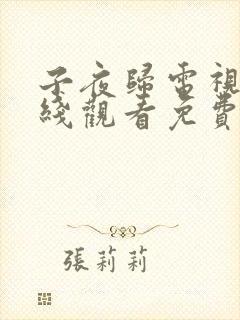 子夜歸電視
綫觀看免費
張莉莉